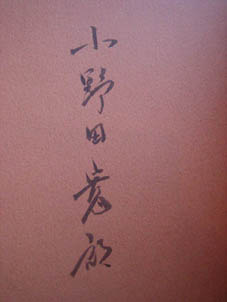 小野田寛郎